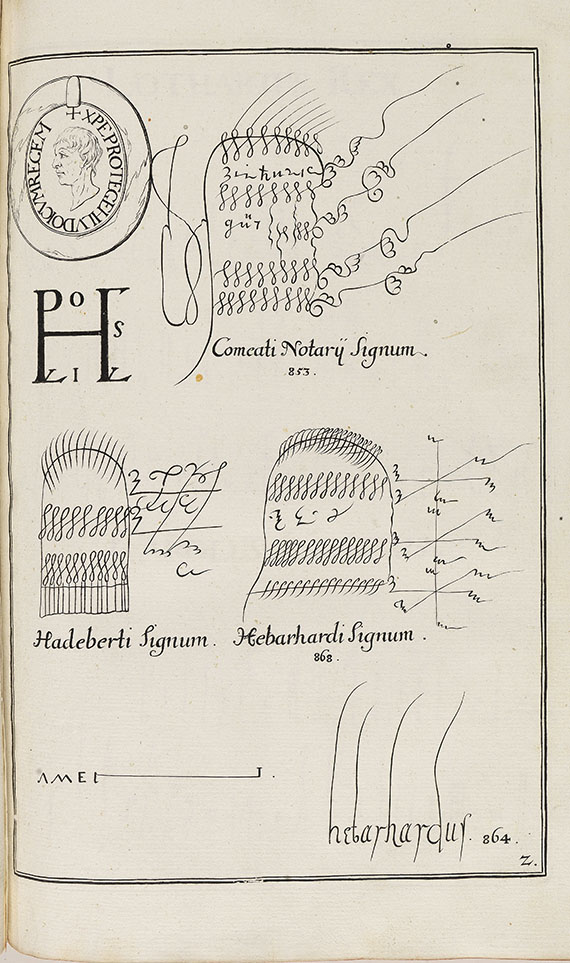 +XPEPROTEGEHLVDOICVMREGEM
P O
S
L I L
Comeati Notarij Signum.
853.
Hadeberti Signum.
Hebarhardi Signum.
868.
AMEI J.
hebarhardus. 864.
2.